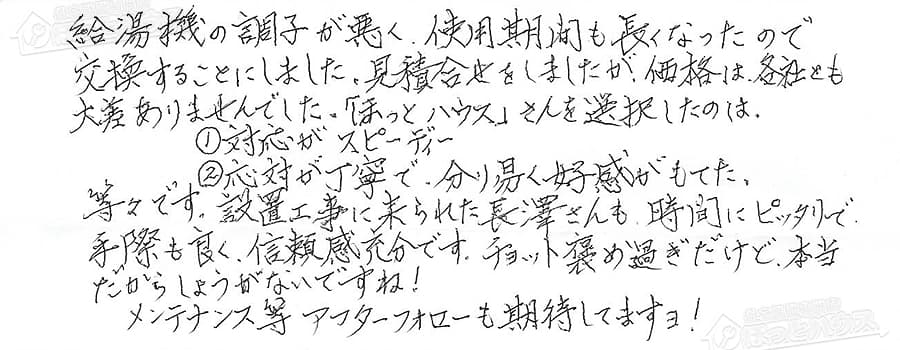 給湯機の調子が悪く、使用期間も長くなったので
交換することにしました。見積合せをしましたが、価格は、各社とも
大差ありませんでした。「ほっとハウス」さんを選択したのは、
①対応がスピーディー
②応対が丁寧で、分り易く好感がもてた、
等々です。設置工事に来られた長澤さんも、時間にピッタリで、
手際も良く、信頼感充分です。チョット褒め過ぎだけど、本当
だからしょうがないですね！
メンテナンス等アフターフォローも期待してますヨ！
ほっとハウス